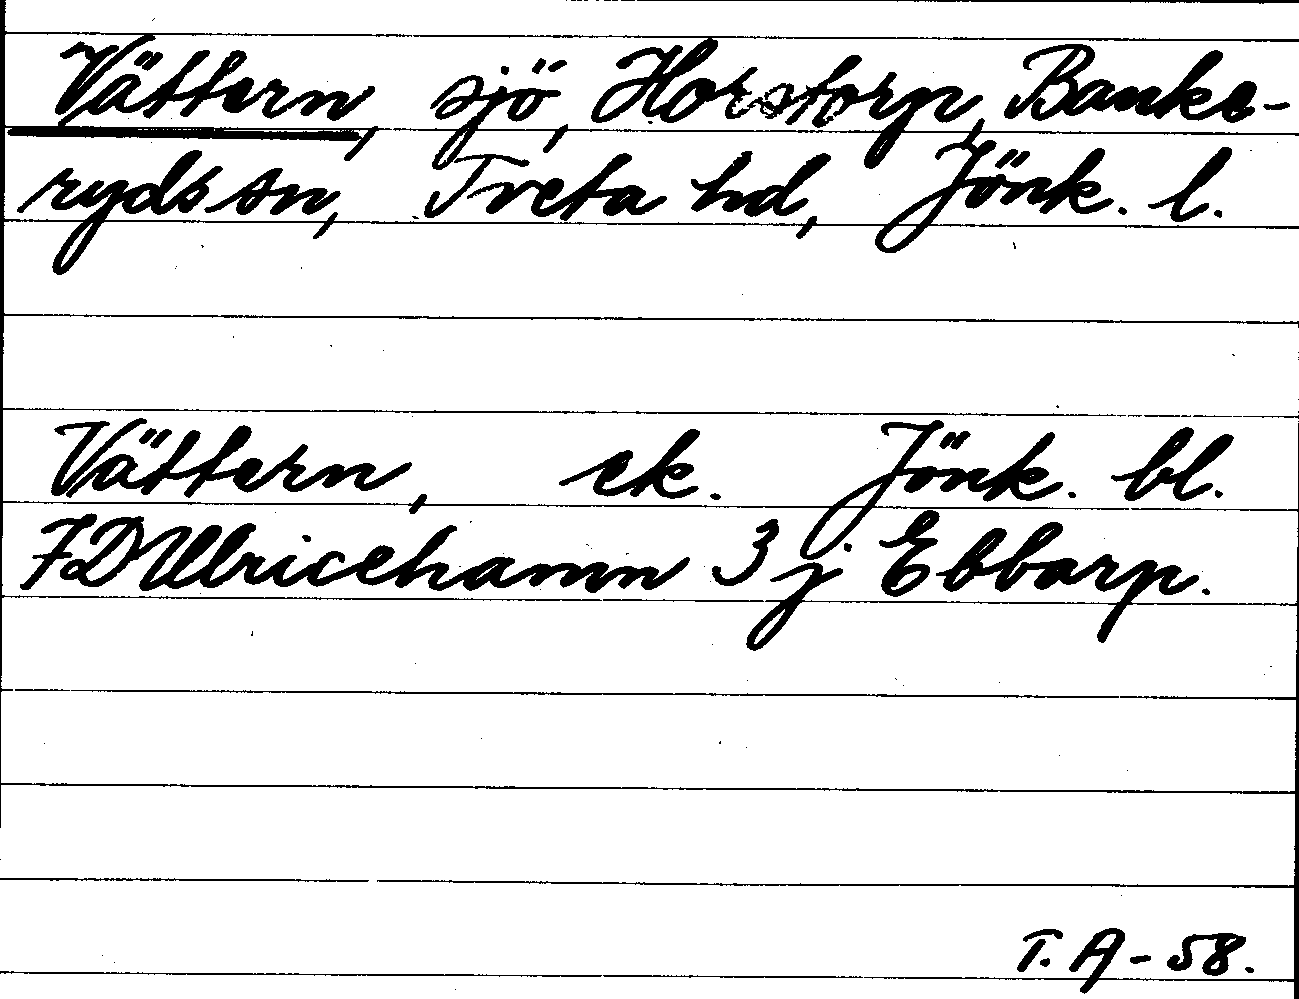 Vättern, sjö, Horstorp, Banke-
ryds sn, Tveta hd, Jönk. l.
Vättern, ek. Jönk. bl.
7D Ulricehamn 3 j Ebbarp.
T. A - 58.